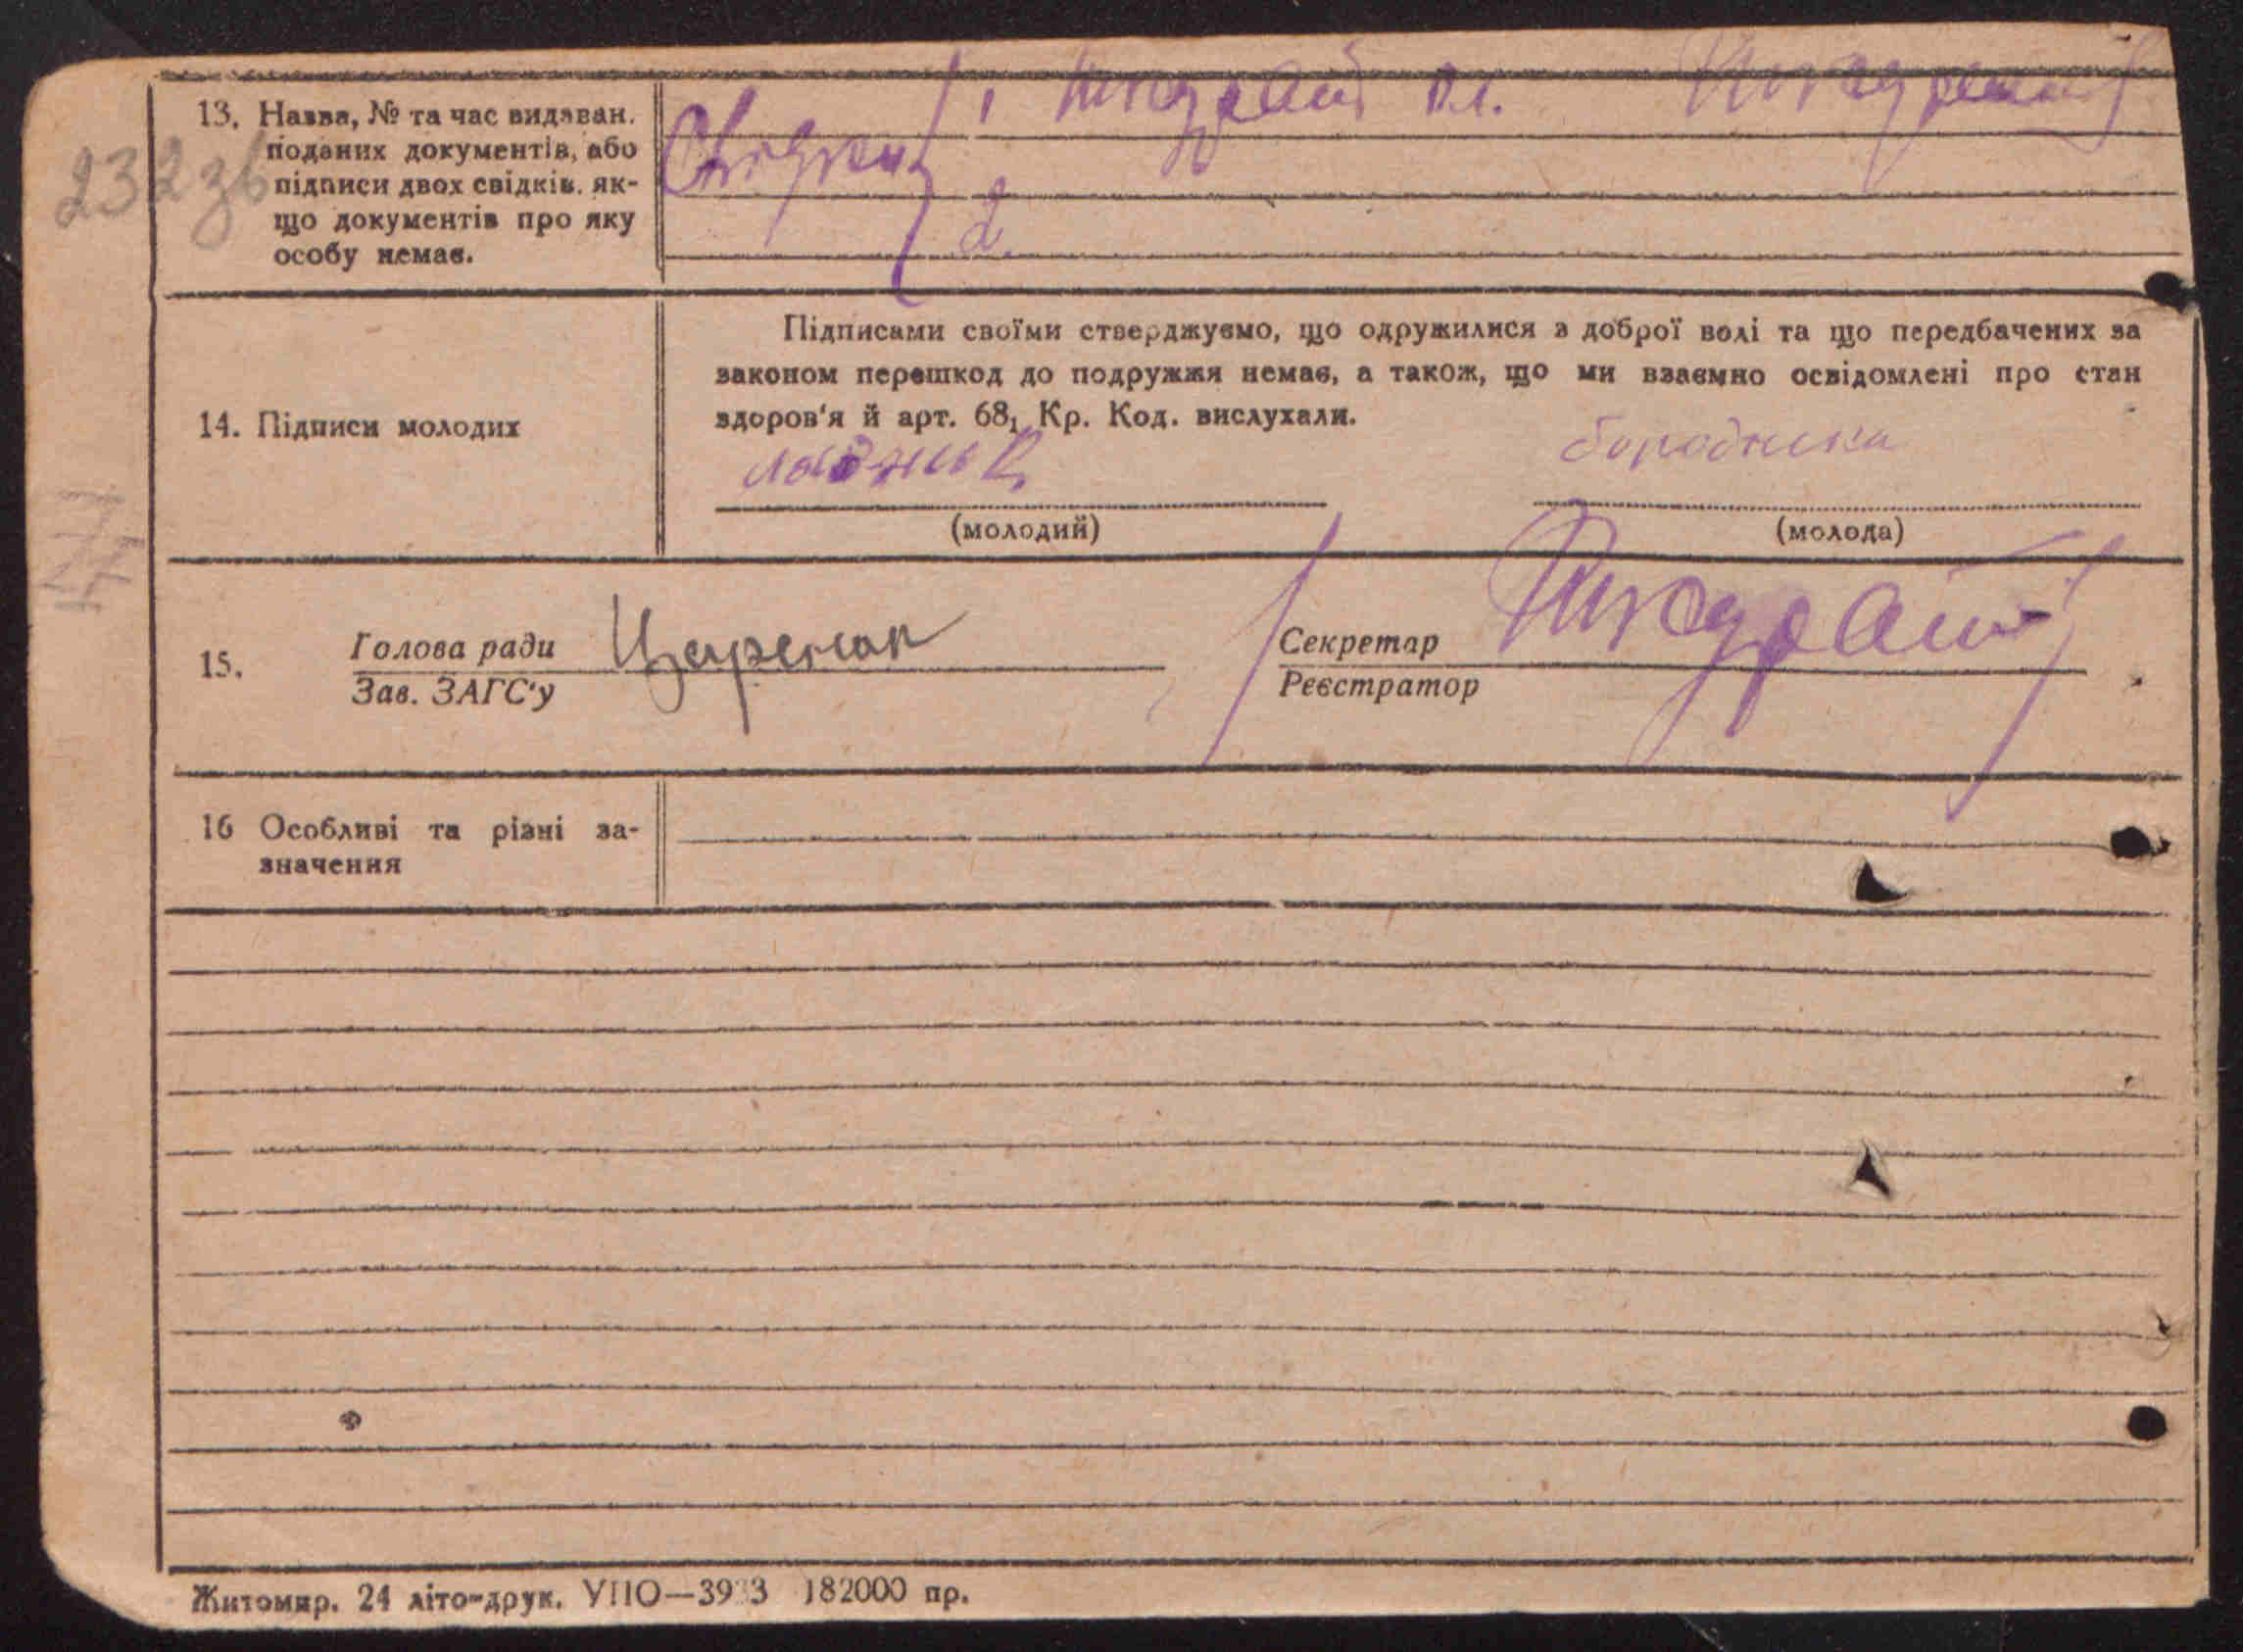 232зв
13. Назва, № та час видаван.
поданих документів, або
підписи двох свідків. як-
що документів про яку
особу немає.
Свідки
1
2.
Підписами своїми стверджуємо, що одружилися з доброї волі та що передбачених за
законом перешкод до подружжя немає, а також, що ми взаємно освідомлені про стан
здоров'я й арт. 68₁ Кр. Код. вислухали.
14. Підписи молодих
(молодий)
(молода)
15.
Голова ради
Зав. ЗАГС'у
Секретар
Реєстратор
16 Особливі та різні за-
значення
Житомир. 24 літо-друк. УПО—3933 182000 пр.